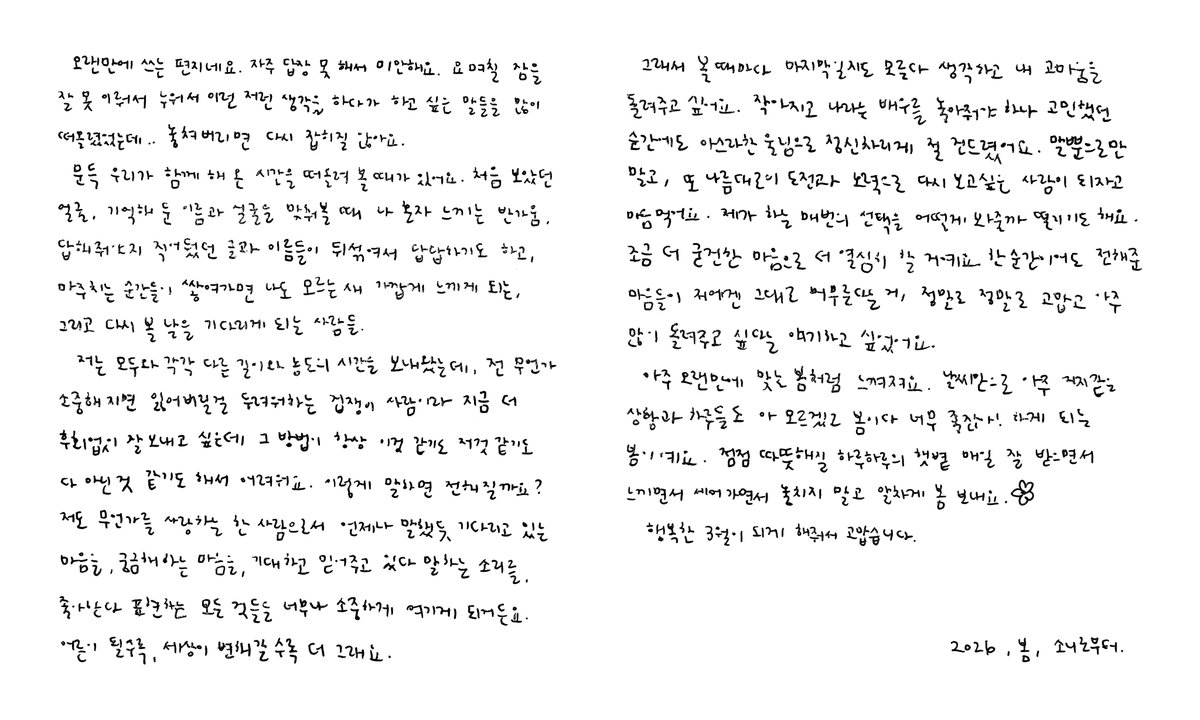 오랜만에 쓰는 편지네요. 자주 답장 못 해서 미안해요. 요 며칠 잠을
잘 못 이뤄서 누워서 이런 저런 생각을 하다가 하고 싶은 말들을 많이
떠올렸었는데.. 놓쳐버리면 다시 잡히질 않아요.
문득 우리가 함께 해 온 시간을 떠올려 볼 때가 있어요. 처음 보았던
얼굴, 기억해 둔 이름과 얼굴을 맞춰볼 때 나 혼자 느끼는 반가움,
답해줘야지 적어뒀던 글과 이름들이 뒤섞여서 답답하기도 하고,
마주치는 순간들이 쌓여가면 나도 모르는 새 가깝게 느끼게 되는,
그리고 다시 볼 날을 기다리게 되는 사람들.
저는 모두와 각각 다른 길이와 농도의 시간을 보내왔는데, 전 무언가
소중해지면 잃어버릴걸 두려워하는 겁쟁이 사람이라 지금 더
후회없이 잘 보내고 싶은데 그 방법이 항상 이것 같기도 저것 같기도
다 아닌 것 같기도 해서 어려워요. 이렇게 말하면 전해질까요?
저도 무언가를 사랑하는 한 사람으로서 언제나 말했듯 기다리고 있는
마음들, 궁금해하는 마음들, 기대하고 믿어주고 있다 말하는 소리들,
좋아한다 표현하는 모든 것들을 너무나 소중하게 여기게 되거든요.
어른이 될수록, 세상이 변해갈 수록 더 그래요.
그래서 볼 때마다 마지막일지도 모른다 생각하고 내 고마움을
돌려주고 싶어요. 작아지고 나라는 배우를 놓아줘야 하나 고민했던
순간에도 아스라한 울림으로 정신차리게 절 건드렸어요. 말뿐으로만
말고, 또 나름대로의 도전과 노력으로 다시 보고싶은 사람이 되자고
마음먹어요. 제가 하는 매번의 선택을 어떻게 봐줄까 떨기기도 해요.
조금 더 굳건한 마음으로 더 열심히 할 거예요. 한순간이어도 전해준
마음들이 저에겐 그대로 머무른다는 거, 정말로 정말로 고맙고 아주
많이 돌려주고 싶다는 얘기하고 싶었어요.
아주 오랜만에 맞는 봄처럼 느껴져요. 날씨만으로 아주 거지같은
상황과 하루들도 아 모르겠고 봄이다 너무 좋잖아! 하게 되는
봄이에요. 점점 따뜻해질 하루하루의 햇볕 매일 잘 받으면서
느끼면서 세어가면서 놓치지 말고 알차게 봄 보내요.
행복한 3월이 되게 해줘서 고맙습니다.
2026, 봄, 소니로부터.